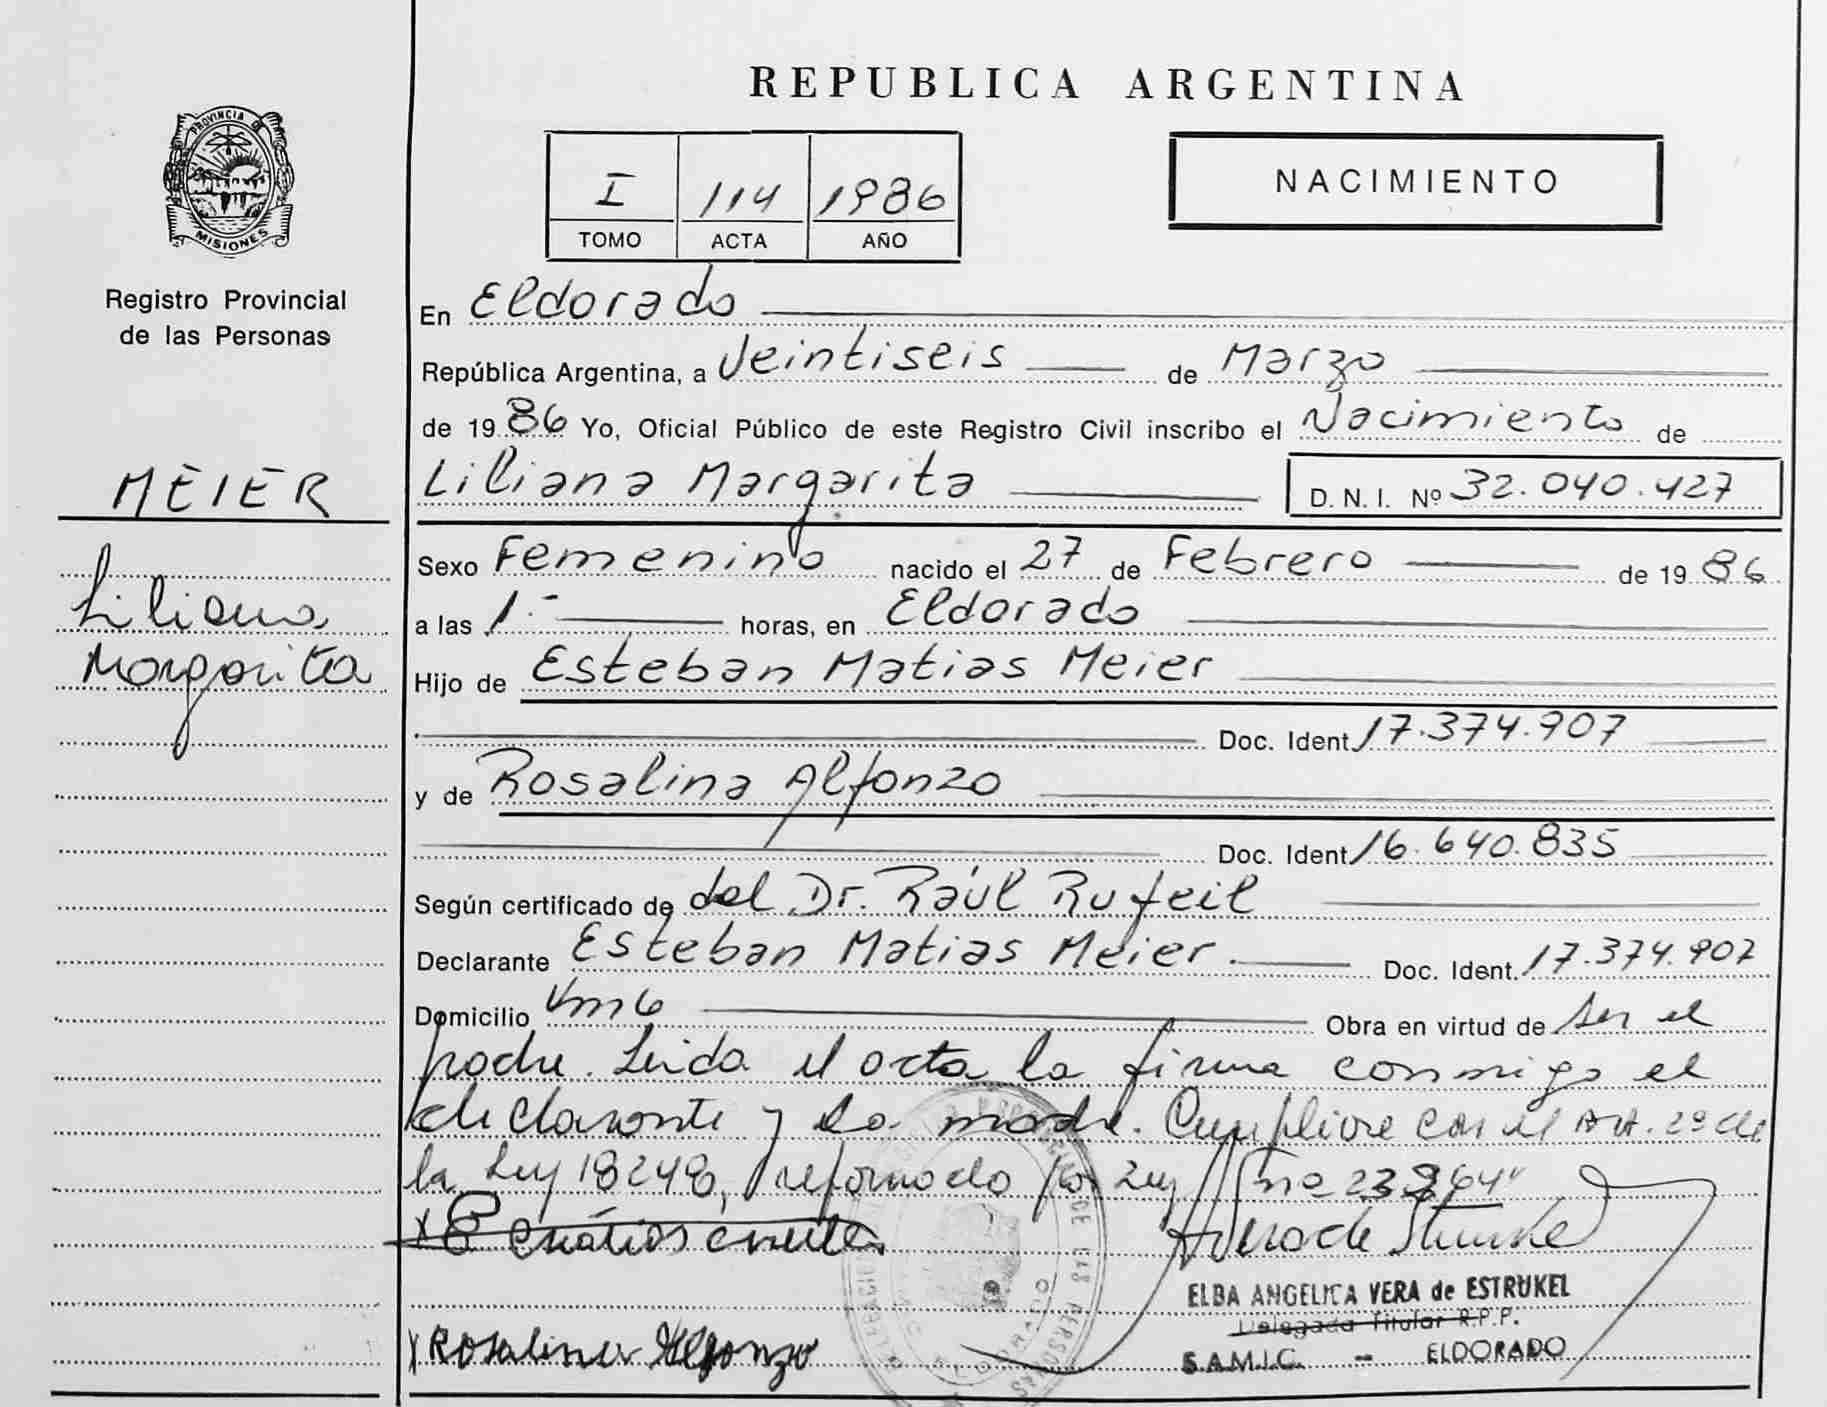 REPUBLICA ARGENTINA
PROVINCIA DE
MISIONES
Registro Provincial
de las Personas
I 114 1986
TOMO ACTA AÑO
NACIMIENTO
En Eldorado
República Argentina, a Veintiseis de Marzo
de 1986 Yo, Oficial Público de este Registro Civil inscribo el Nacimiento de
MEIER
Liliana Margarita D. N. I. Nº 32.040.427
Liliana
Margarita
Sexo Femenino nacido el 27 de Febrero de 1986
a las 1.- horas, en Eldorado
Hijo de Esteban Matias Meier
Doc. Ident. 17.374.907
y de Rosalina Alfonzo
Doc. Ident. 16.640.835
Según certificado de del Dr. Raúl Rufeil
Declarante Esteban Matias Meier. Doc. Ident. 17.374.907
Domicilio Km 6 Obra en virtud de ser el
padre. Leida el acta la firma conmigo el
declarante y la madre. Cumplive con el Art. 2º de
la Ley 18248, reformado por Ley nº
ELBA ANGELICA VERA de ESTRUKEL
Delegada Titular R.P.P.
S.A.M.I.C. - ELDORADO
x Rosalina Alfonzo